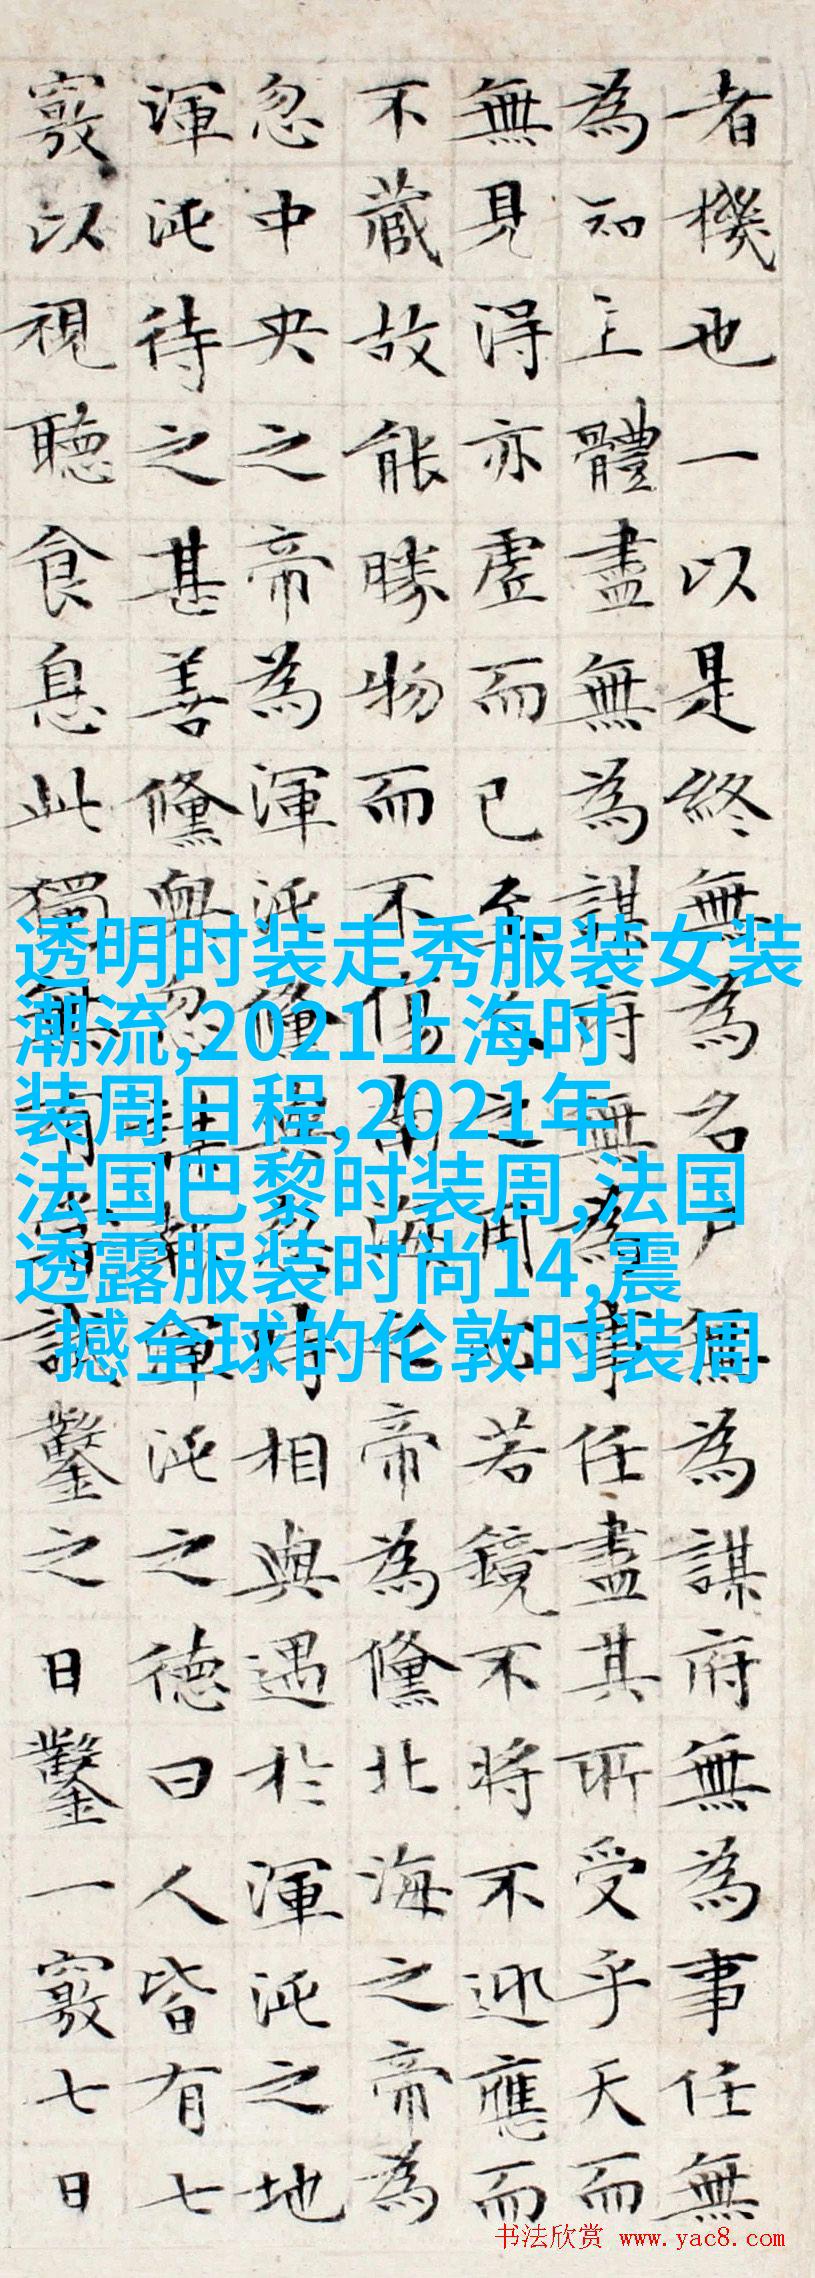 者機也一以是終無為名尸無為謀府無為事任無
為知主體盡無為謀府無為事任盡其所受乎天而
無見得亦虛而已至人之用心若鏡不將不迎應而
不藏故能勝物而不傷南海之帝為儵北海之帝為
忽中央之帝為渾沌儵與忽時相與遇於渾沌之地
渾沌待之甚善儵與忽謀報渾沌之德曰人皆有七
竅以視聽食息此獨無有嘗試鑿之日鑿一竅七日
透明时装走秀服装女装
潮流,2021上海时
装周日程,2021年
法国巴黎时装周,法国
透露服装时尚14,震
撼全球的伦敦时装周
书法欣赏 www.yac8.com